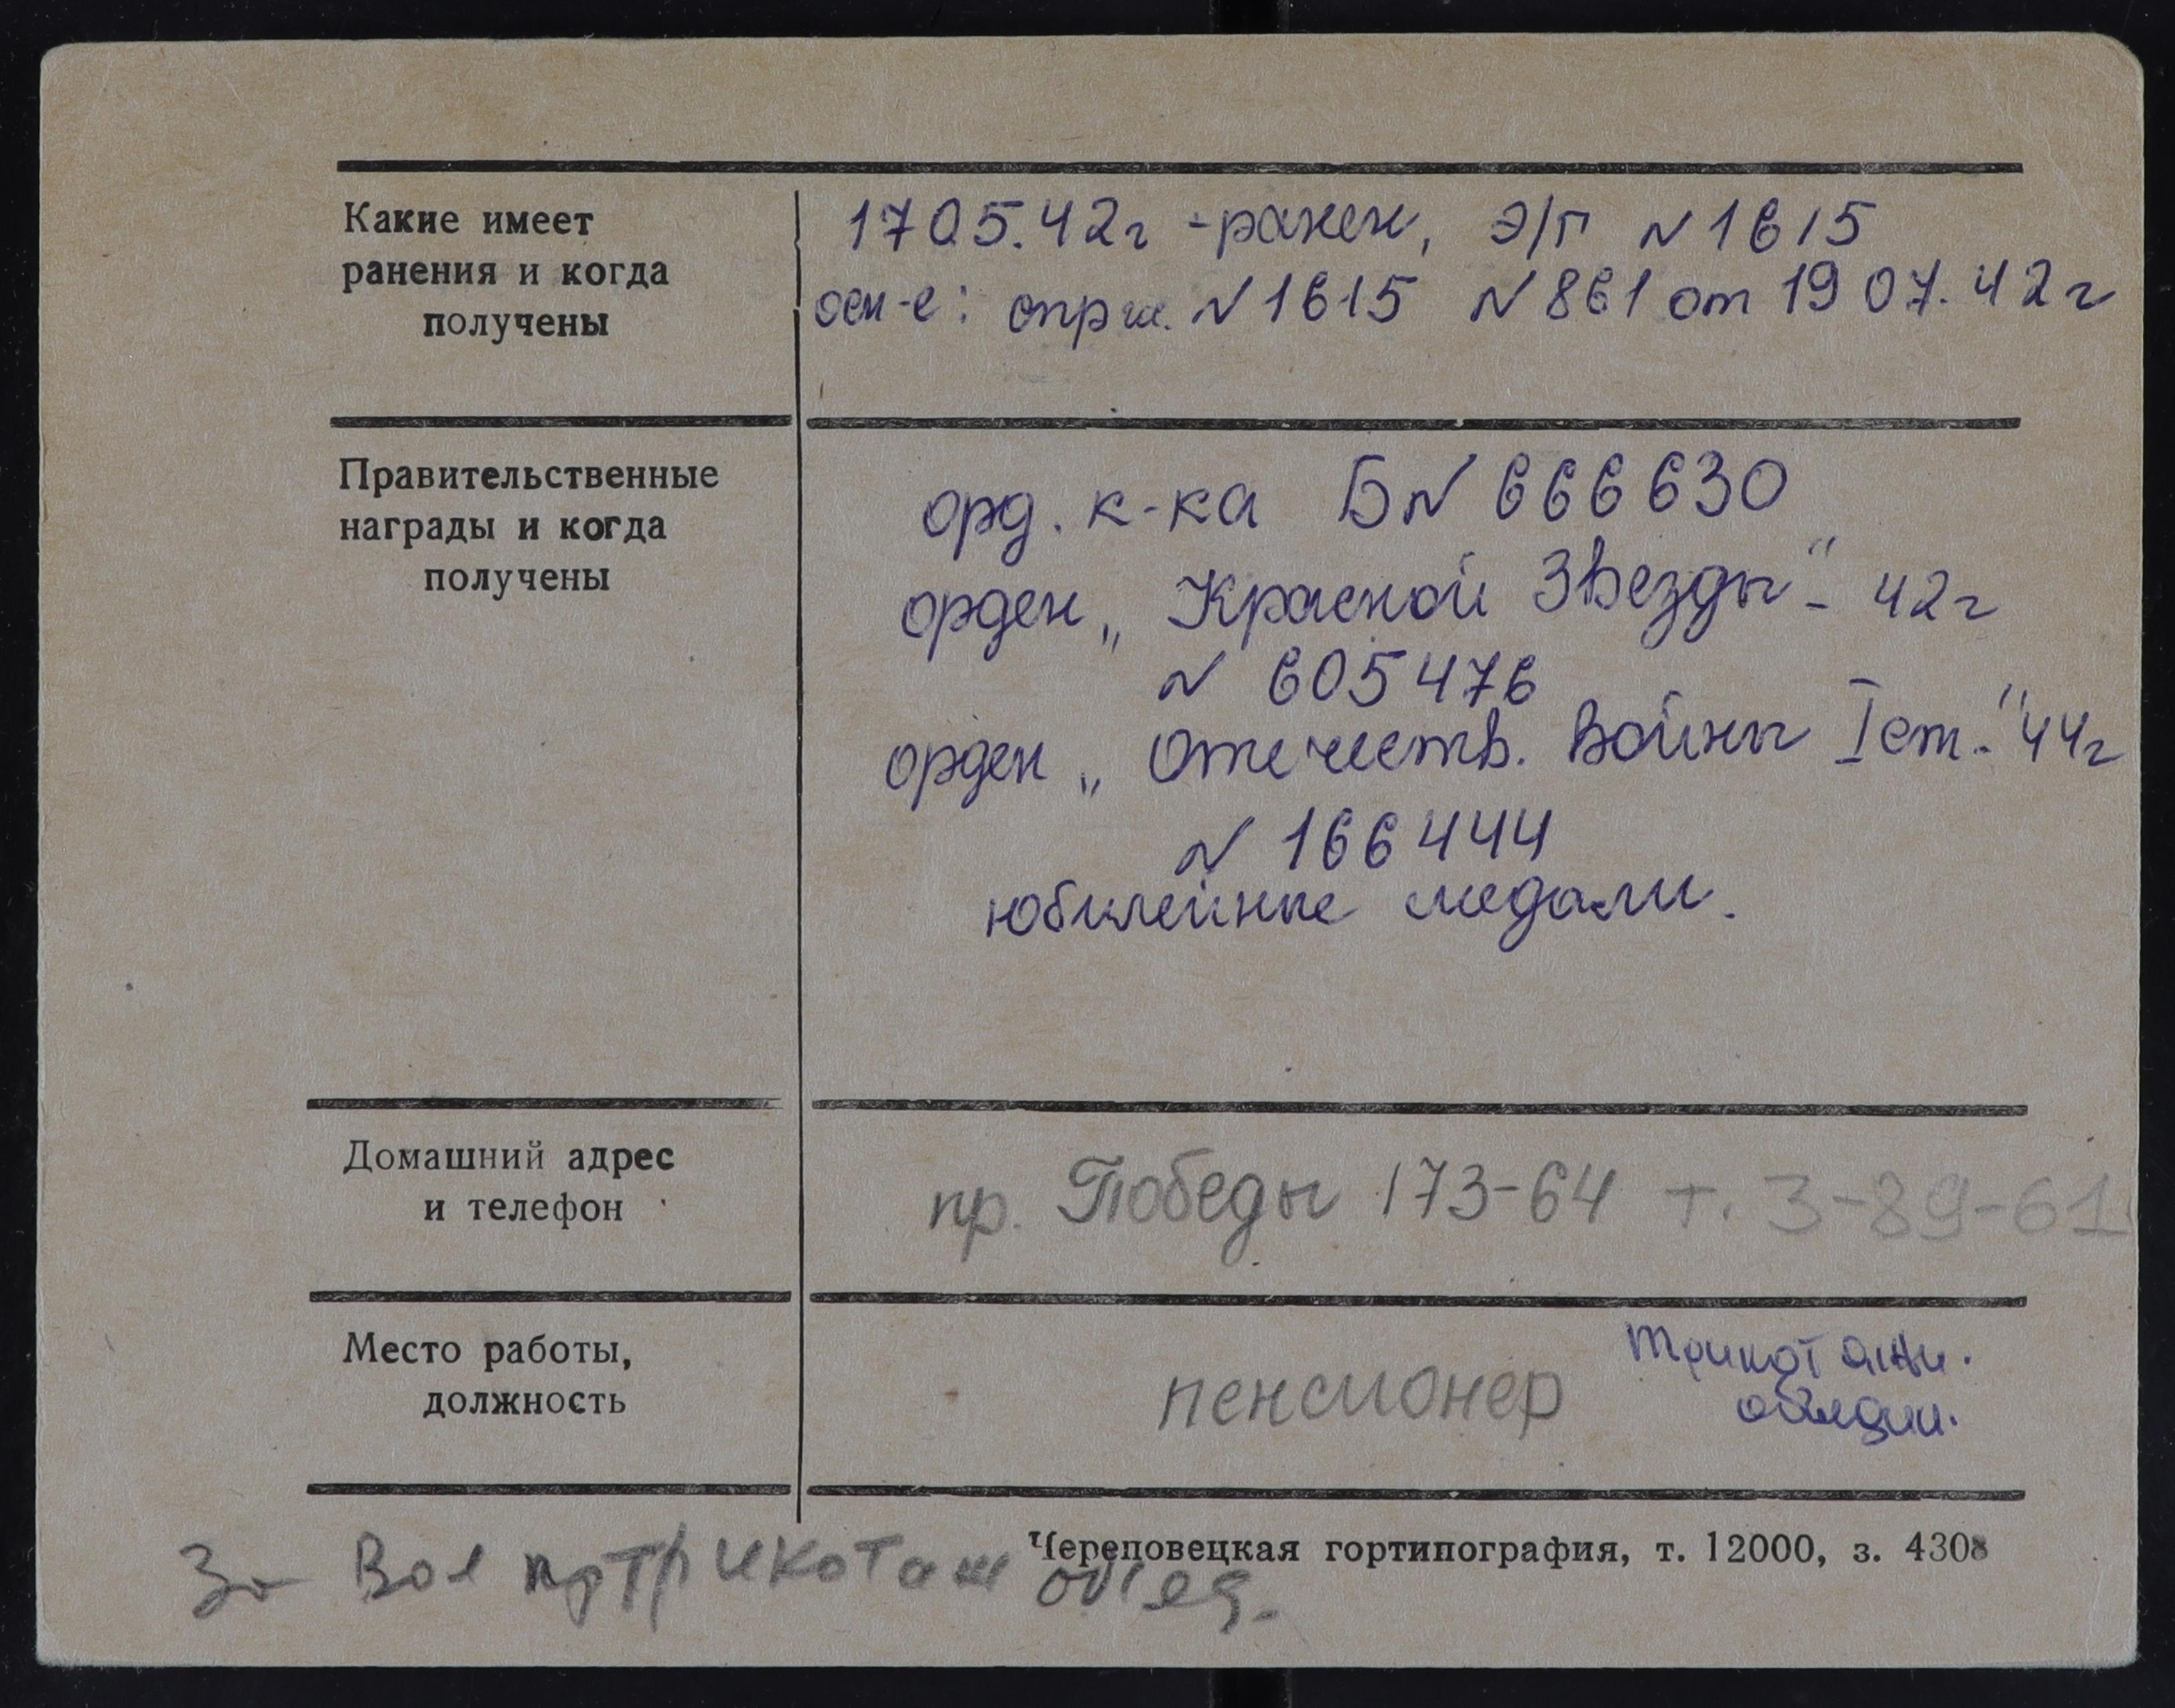 Какие имеет
ранения и когда
получены
17 05.42г - ранен, Э/Г N 1615
осн-е: спр. N 1615 N 861 от 19 07.42г
Правительственные
награды и когда
получены
орд. к-ка Б N 666630
орден „Красной Звезды“ - 42г
N 605476
орден „Отечеств. Войны I ст.“ 44г
N 166444
юбилейные медали.
Домашний адрес
и телефон
пр. Победы 173-64 т. 3-89-61
Место работы,
должность
пенсионер
Трикотажн.
объедин.
Череповецкая гортипография, т. 12000, з. 4308
трикотаж объед.